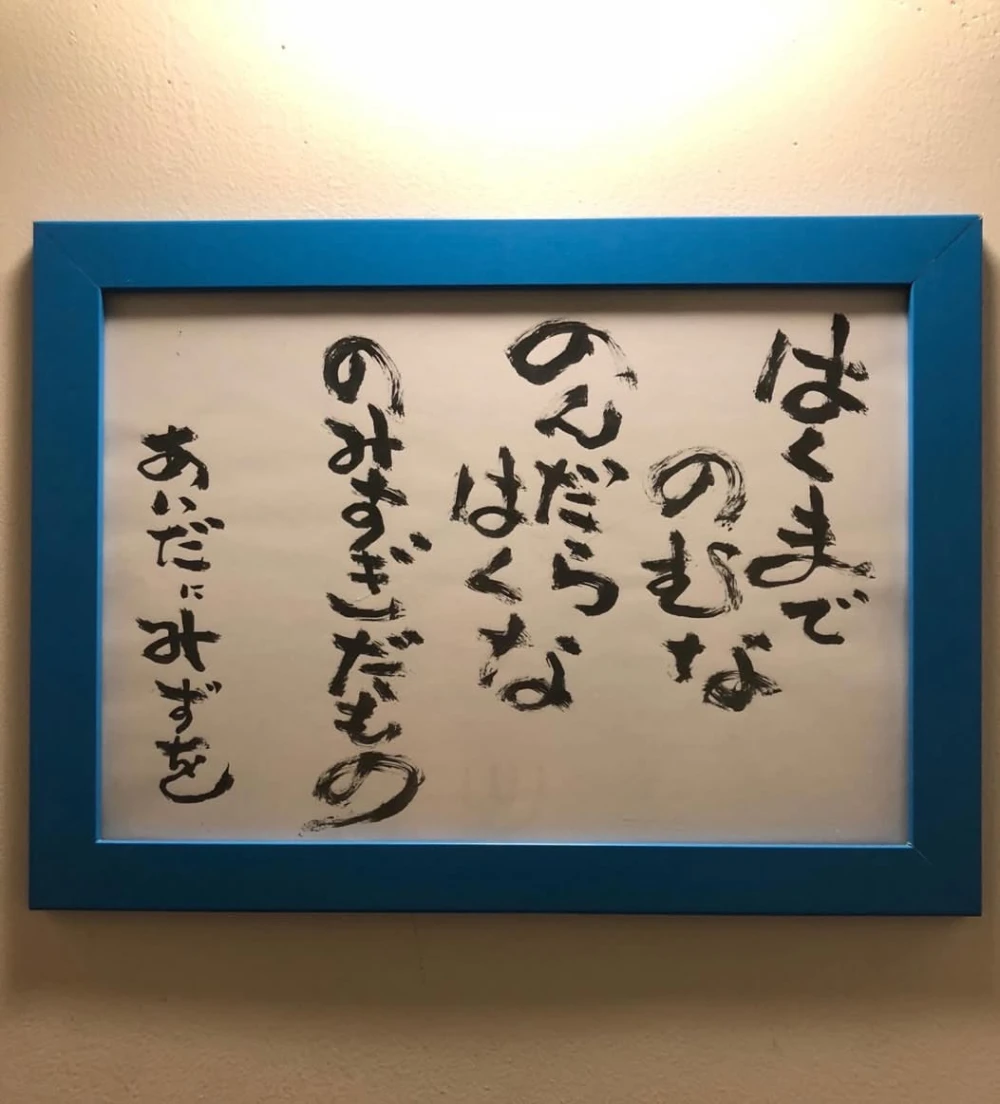 はくまで
のむな
のんだら
はくな
のみすぎだもの
あいだにみずを